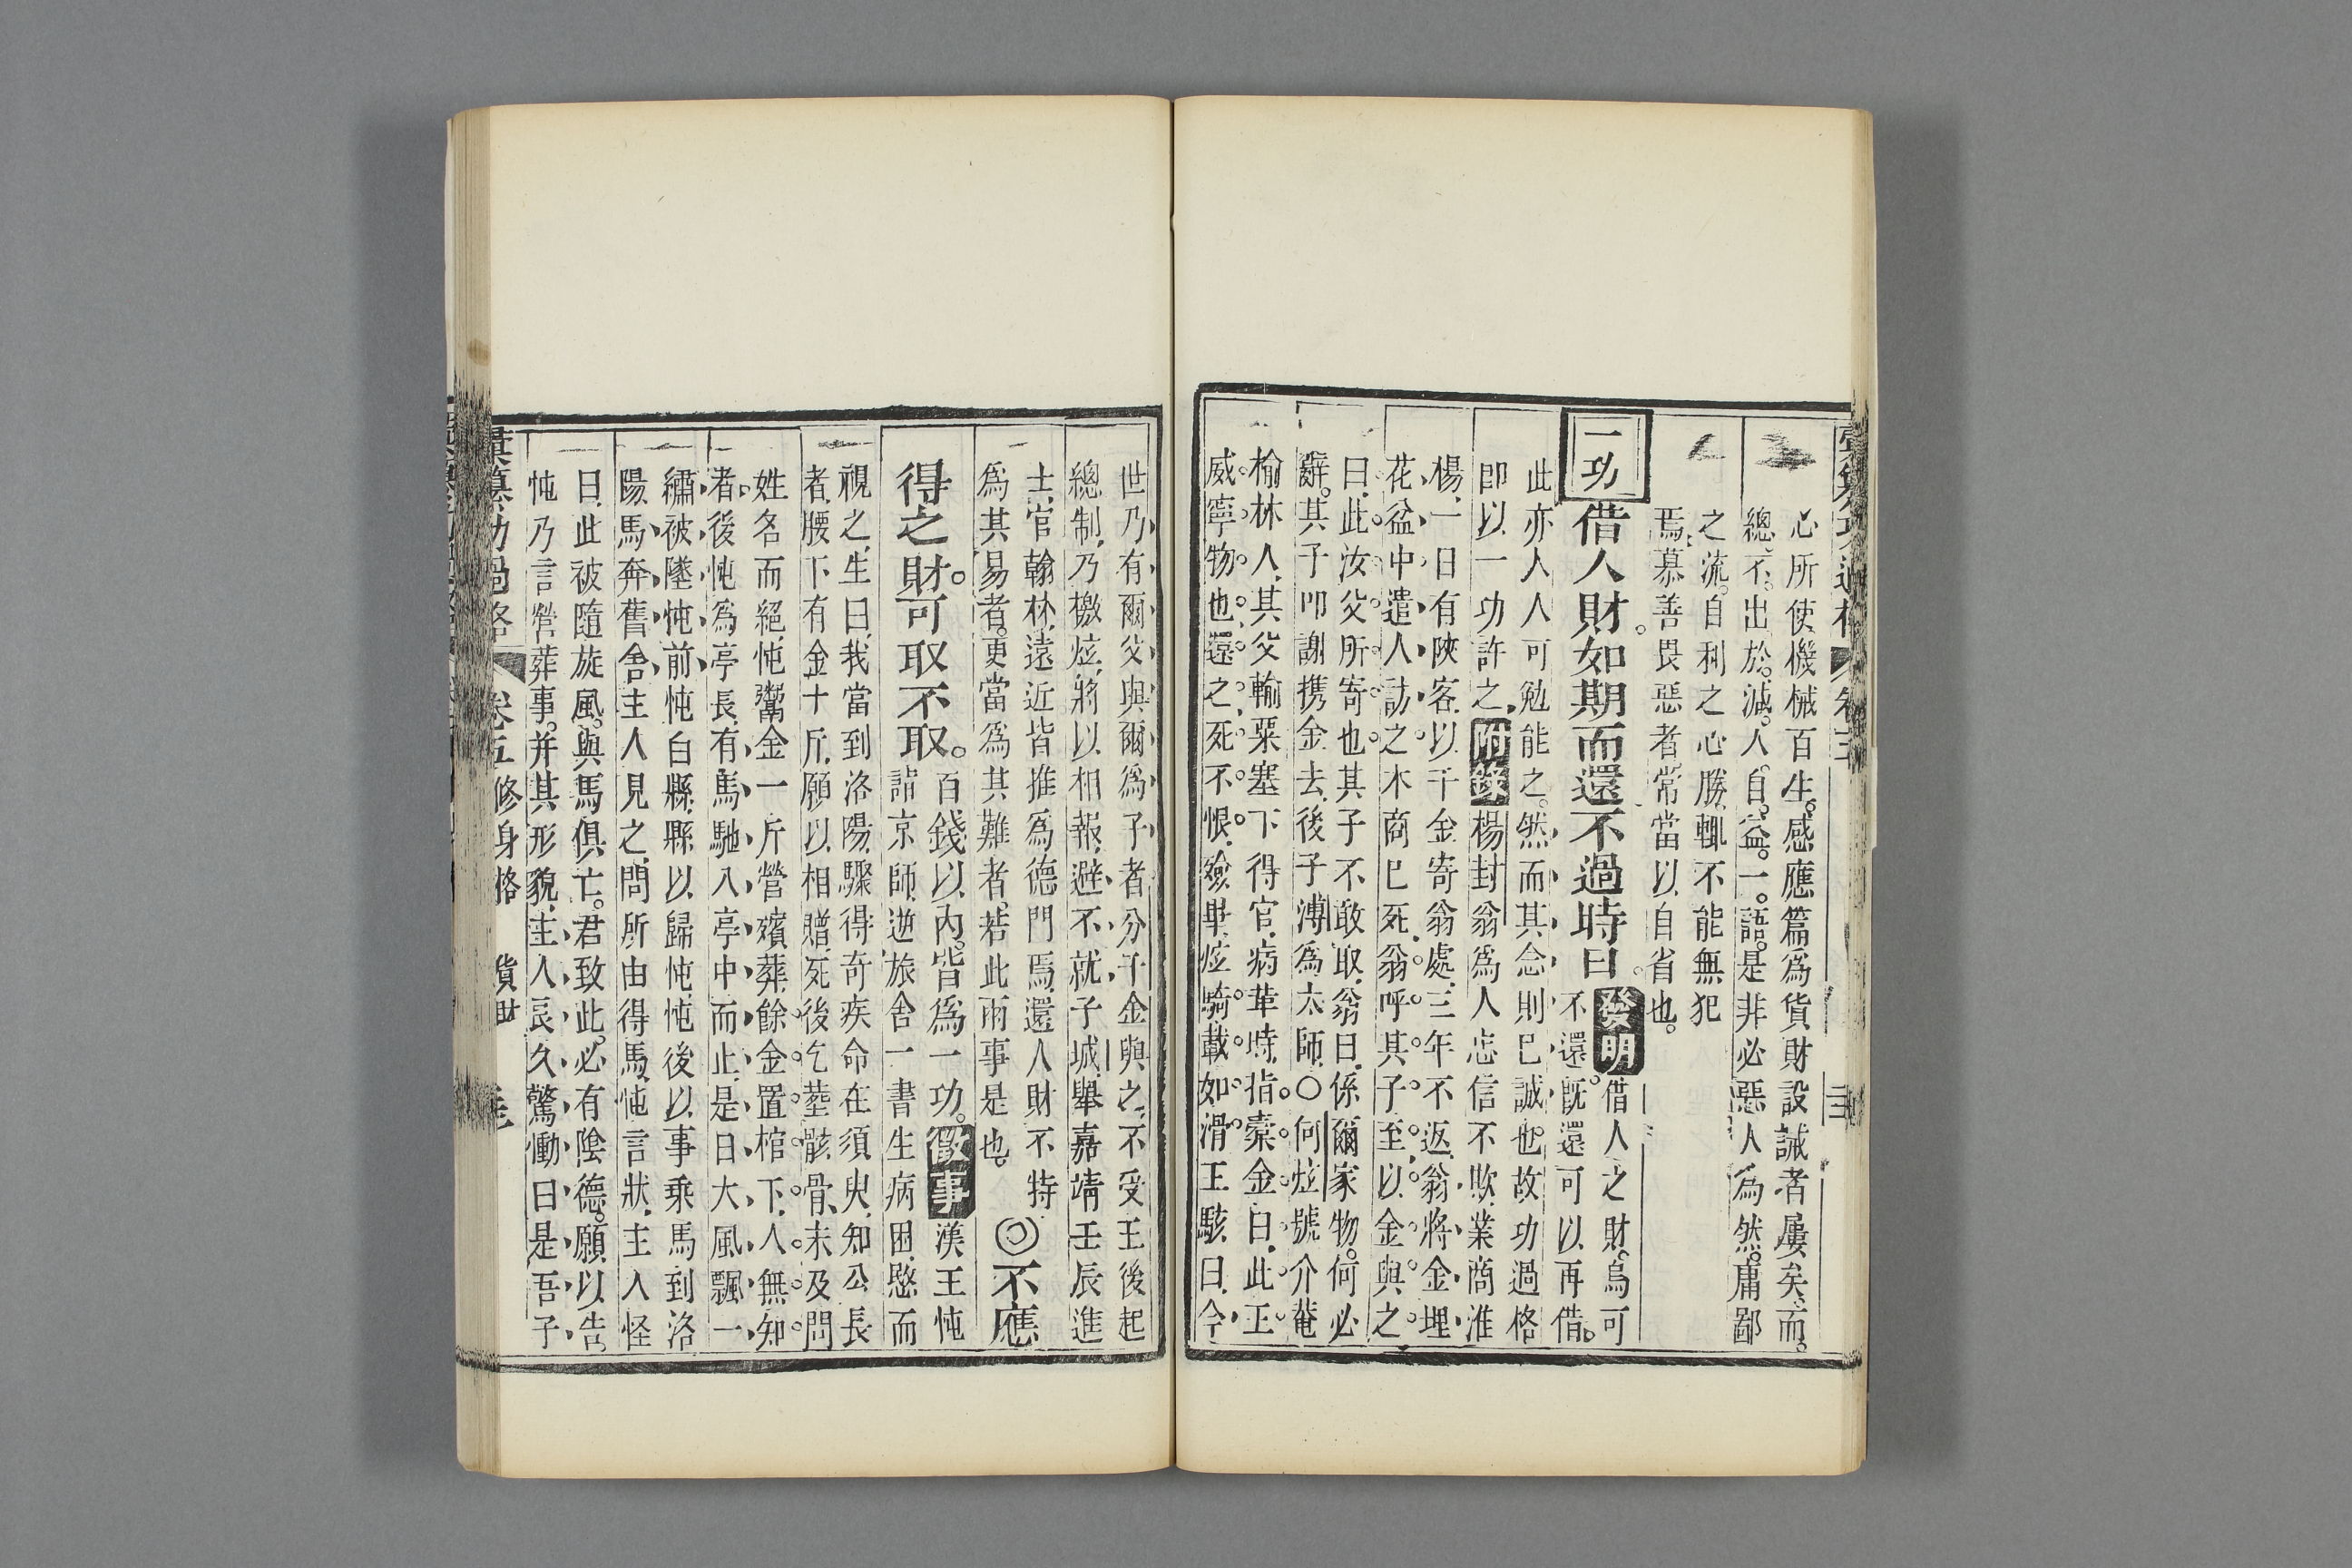 心所使機械百生。感應篇為貨財設誡者屢矣。而。
總。不。出於。減。人。自。益。一。語。是非必惡人為然。庸鄙
之流。自利之心勝。輒不能無犯
焉。慕善畏惡者。常當以自省也。
一功
借人財。如期而還。不過時日。
發明
借人之財。烏可
不還。既還可以再借。
此亦人人可勉能之。然而其念則已誠也。故功過格
即以一功許之。
附錄
楊封翁為人忠信不欺。業商淮
楊。一日有陝客。以千金寄翁處。三年不返。翁將金埋
花盆中。遣人訪之。木商已死。翁呼其子至。以金與之
曰。此汝父所寄也。其子不敢取。翁曰。係爾家物。何必
辭。其子叩謝携金去。後子溥為太師。○何炫號介菴
榆林人。其父輸粟塞下得官。病革時。指橐金曰。此王
威寧物也。還之。死不恨。殮畢。炫騎載如滑。王駭曰。今
世乃有爾父與爾為子者。分千金與之。不受。王後起
總制。乃檄炫。將以相報。避不就。子城。舉嘉靖壬辰進
士。官翰林。遠近皆推為德門焉。還人財不特
為其易者。更當為其難者。若此兩事是也。
◎不應
得之財。可取不取。
百錢以內。皆為一功。
徵事
漢王忳
詣京師。遊旅舍。一書生病困。愍而
視之。生曰。我當到洛陽。驟得奇疾。命在須臾。知公長
者。腰下有金十斤。願以相贈。死後乞塟骸骨。未及問
姓名而絕。忳鬻金一斤營殯葬。餘金置棺下。人無知
者。後忳為亭長。有馬馳入亭中而止。是日大風飄一
繡被墜忳前。忳白縣。縣以歸忳。忳後以事乘馬到洛
陽。馬奔舊舍。主人見之。問所由得馬。忳言狀。主人怪
曰。此被隨旋風。與馬俱亡。君致此。必有陰德。願以告。
忳乃言營葬事。并其形貌。主人哀久驚慟曰。是吾子
彙纂功過格
卷五 修身格 貨財